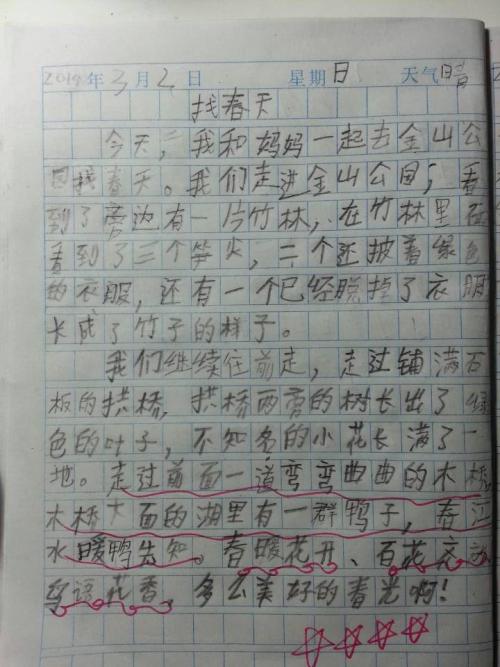 2014年3月2日 星期日 天气晴
找春天
今天,我和妈妈一起去金山公
园找春天。我们走进金山公园,看
到了旁边有一片竹林,在竹林里
看到了三个笋尖,二个还披着绿色
的衣服,还有一个已经脱掉了衣服
长成了竹子的样子。
我们继续往前走,走过铺满石
板的拱桥,拱桥两旁的树长出了绿
色的叶子,不知名的小花长满了一
地。走过前面一道弯弯曲曲的木桥
木桥下面的湖里有一群鸭子,春江
水暖鸭先知。春暖花开、百花齐放
鸟语花香,多么美好的春光啊!